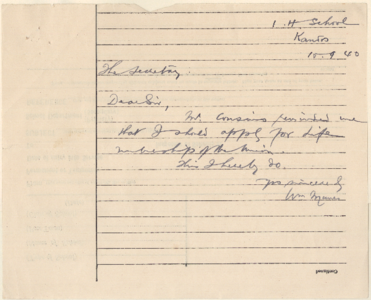 I. H. School
Kantos
10.9.40
The Secretary.
Dear Sir,
Mr. Cousins reminded me
that I should apply for Life
membership of the Union.
This I hereby do.
yrs sincerely
Wm